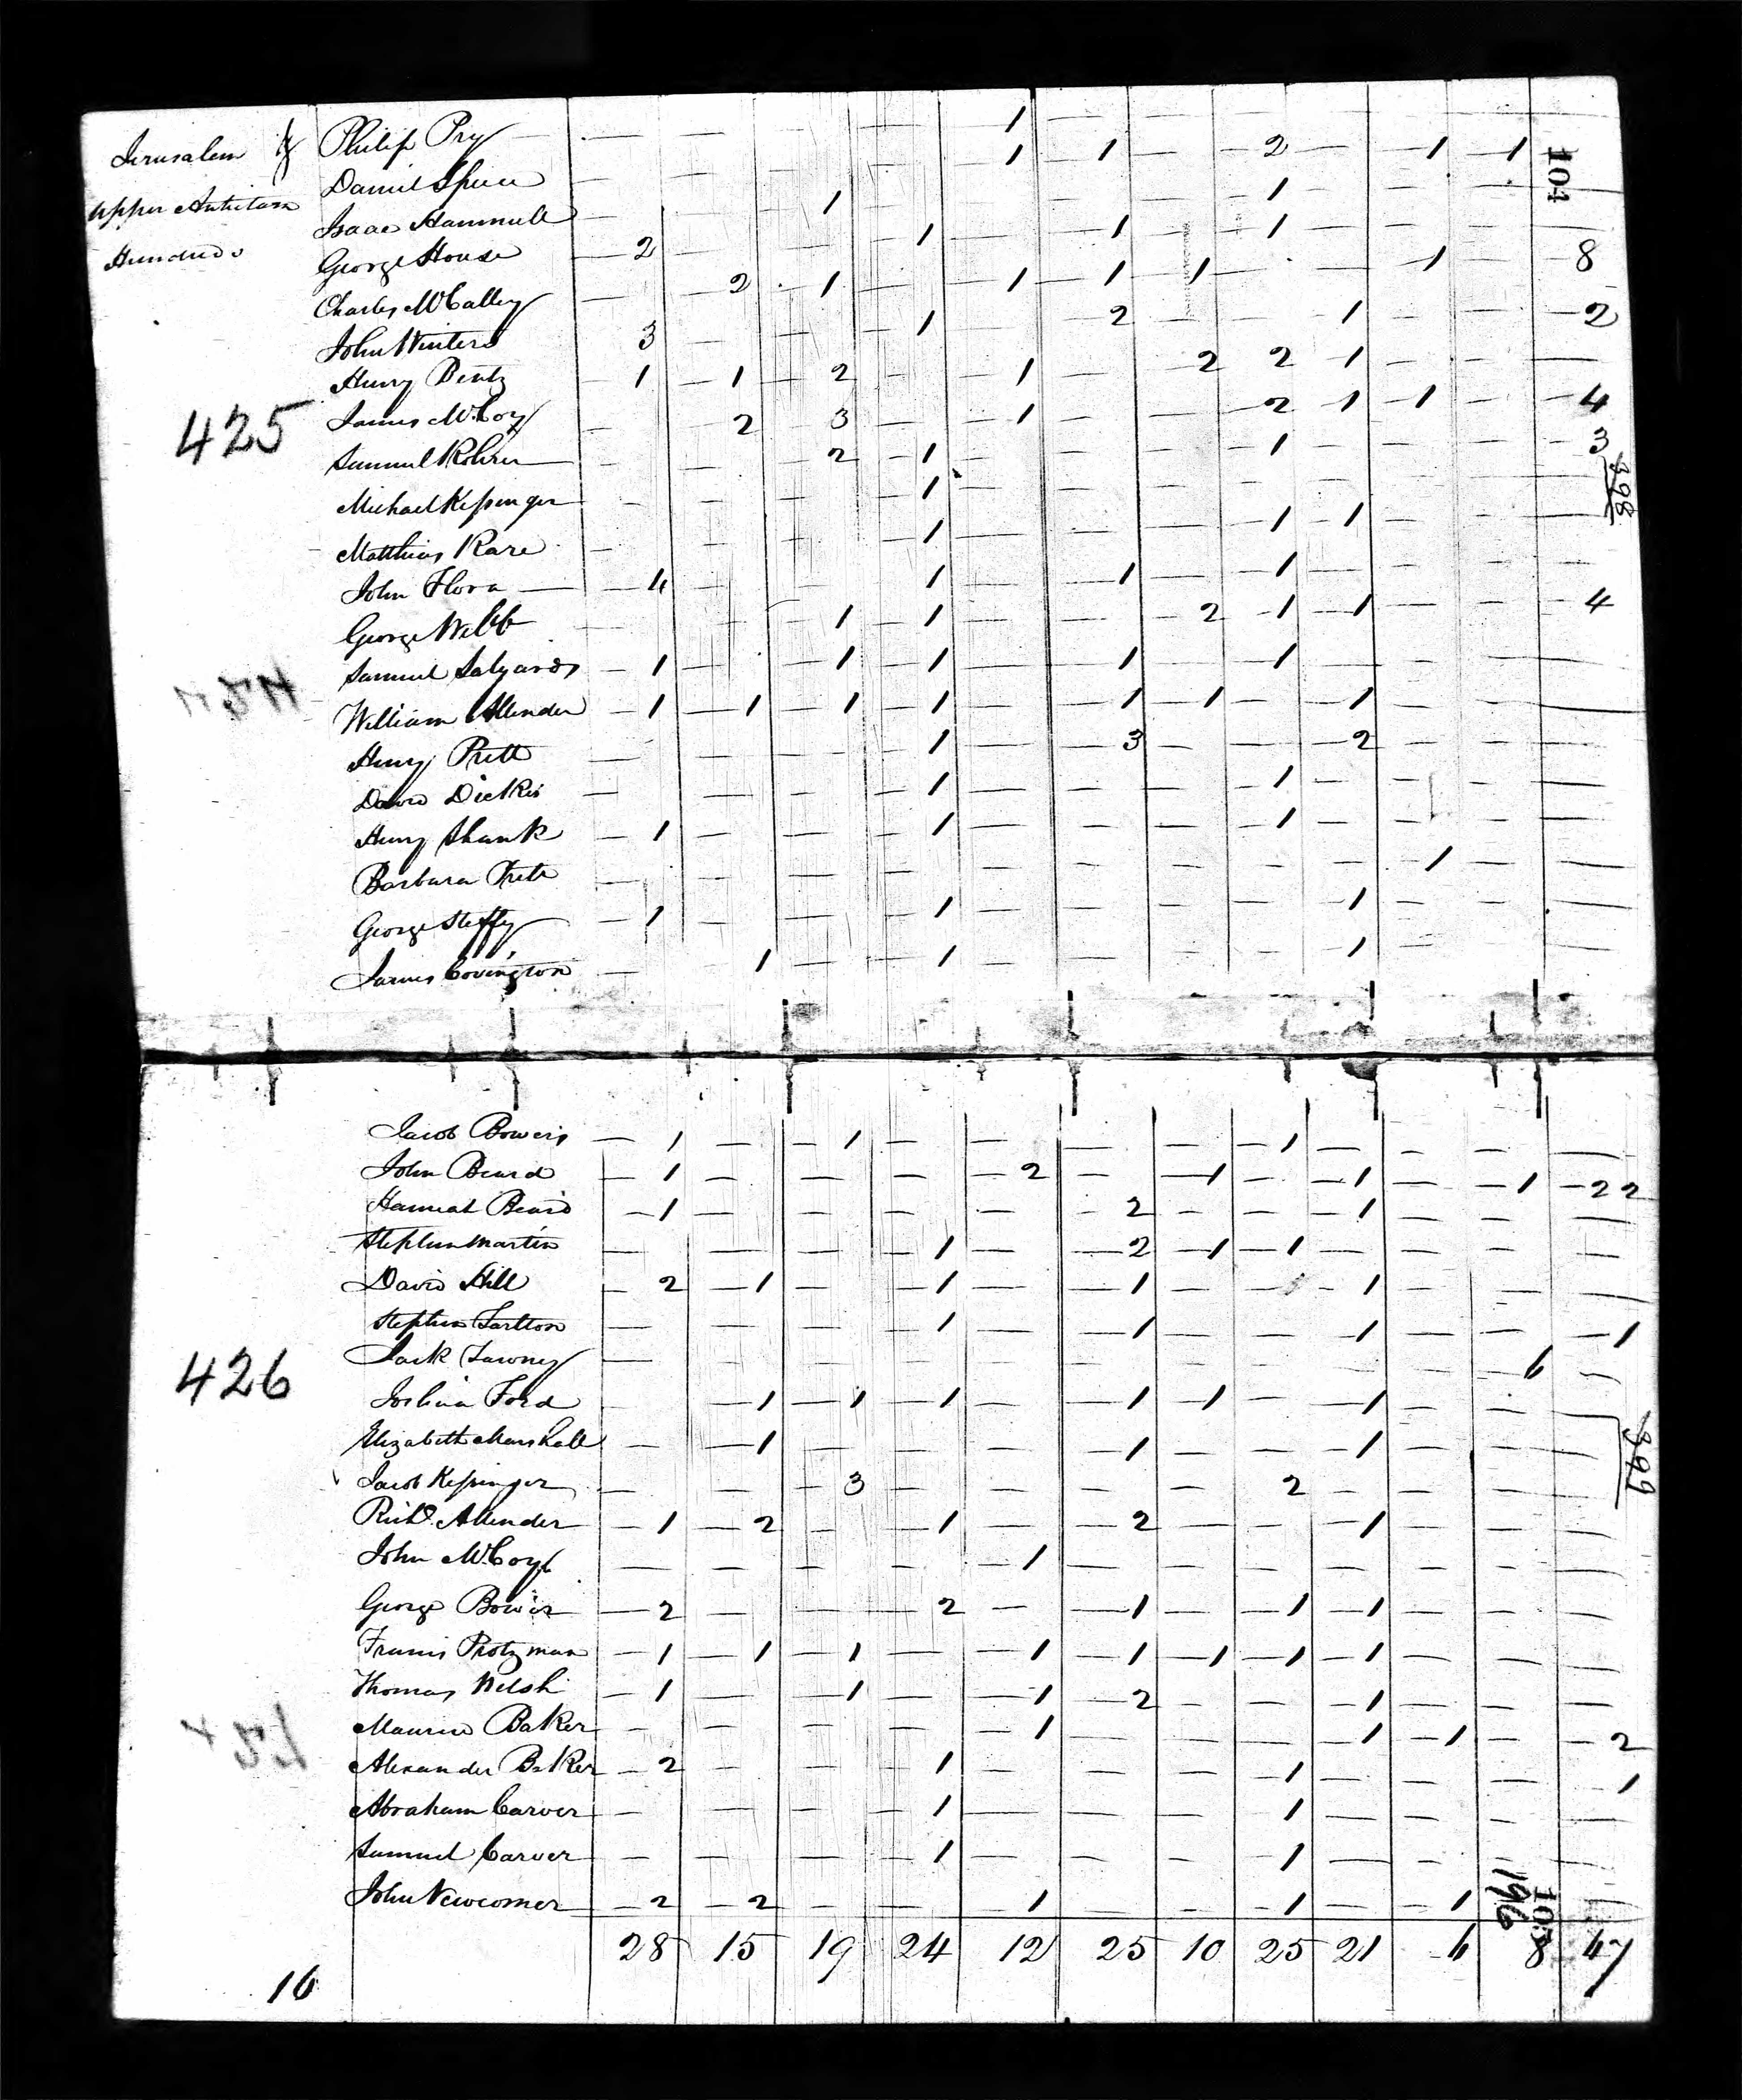 Jerusalem & Philip Pry — — — — 1 — — — — — —
Upper Antietam Daniel Spice — — — — 1 1 — 2 — 1 1 104
Isaac Hammell — — 1 — — — — 1 — — —
Hundreds George House 2 — — 1 — 1 — 1 — — — 8
Charles McCalley — 2 1 — 1 1 1 — — 1 —
John Winters 3 — — 1 — 2 — — 1 — — 2
Henry Bentz 1 1 2 — 1 — 2 2 1 — — —
425 James McCoy — 2 3 — 1 — — 2 1 1 — 4
Samuel Rohrer — — 2 1 — — — 1 — — — 3
398
Michael Kessinger — — — 1 — — — — — — —
Matthias Rare — — — 1 — — — 1 1 — —
John Flora 4 — — 1 — 1 — 1 — — —
George Webb — — 1 1 — — 2 1 1 — — 4
Samuel Salyards 1 — 1 1 — 1 — 1 — — —
William Allender 1 1 1 1 — 1 1 — 1 — —
Henry Prett — — — 1 — 3 — — 2 — —
David Dickis — — — 1 — — — 1 — — —
Henry Shank 1 — — 1 — — — 1 — — —
Barbara — — — — — — — — — 1 —
George Steffy 1 — — 1 — — — — 1 — —
James Covington — 1 — 1 — — — — 1 —
Jacob Bowers 1 — 1 — — — — 1 — — —
John Beard 1 — — — 2 — 1 — 1 — 1 22
Hannah Beard 1 — — — — 2 — — 1 — —
Stephen Martin — — — 1 — 2 1 1 — — —
David Hill 2 1 — 1 — 1 — — 1 — —
Stephen Tarlton — — — 1 — 1 — — 1 — — 1
426 Jack Tawney — — — — — — — — — — 6 —
Joshua Ford — 1 1 1 — 1 1 — 1 — —
Elizabeth Marshall — 1 — — — 1 — — 1 — —
399
Jacob Kessinger — — 3 — — — — 2 — — —
Richd. Allender 1 2 — 1 — 2 — — 1 — —
John McCoy — — — — 1 — — — — — —
George Bower 2 — — 2 — 1 — 1 1 — —
Francis Protzman 1 1 1 — 1 1 1 1 1 — —
Thomas Welsh 1 — 1 — 1 2 — — 1 — —
Maurice Baker — — — — 1 — — — 1 1 — 2
Alexander Baker 2 — — 1 — — — 1 — — — 1
Abraham Carver — — — 1 — — — 1 — — —
Samuel Carver — — — 1 — — — 1 — — —
John Newcomer 2 2 — — 1 — — 1 — 1
196
28 15 19 24 12 25 10 25 21 6 8 47
16